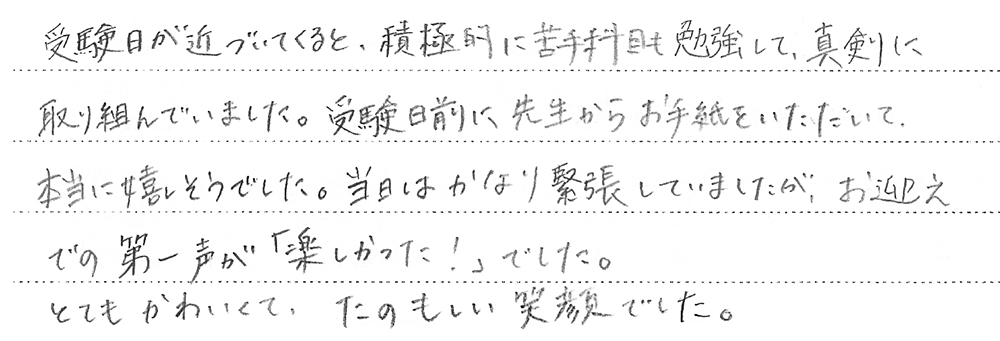 受験日が近づいてくると、積極的に苦手科目も勉強して、真剣に
取り組んでいました。受験日前に、先生からお手紙をいただいて、
本当に嬉しそうでした。当日はかなり緊張していましたが、お迎え
での第一声が「楽しかった！」でした。
とてもかわいくて、たのもしい笑顔でした。